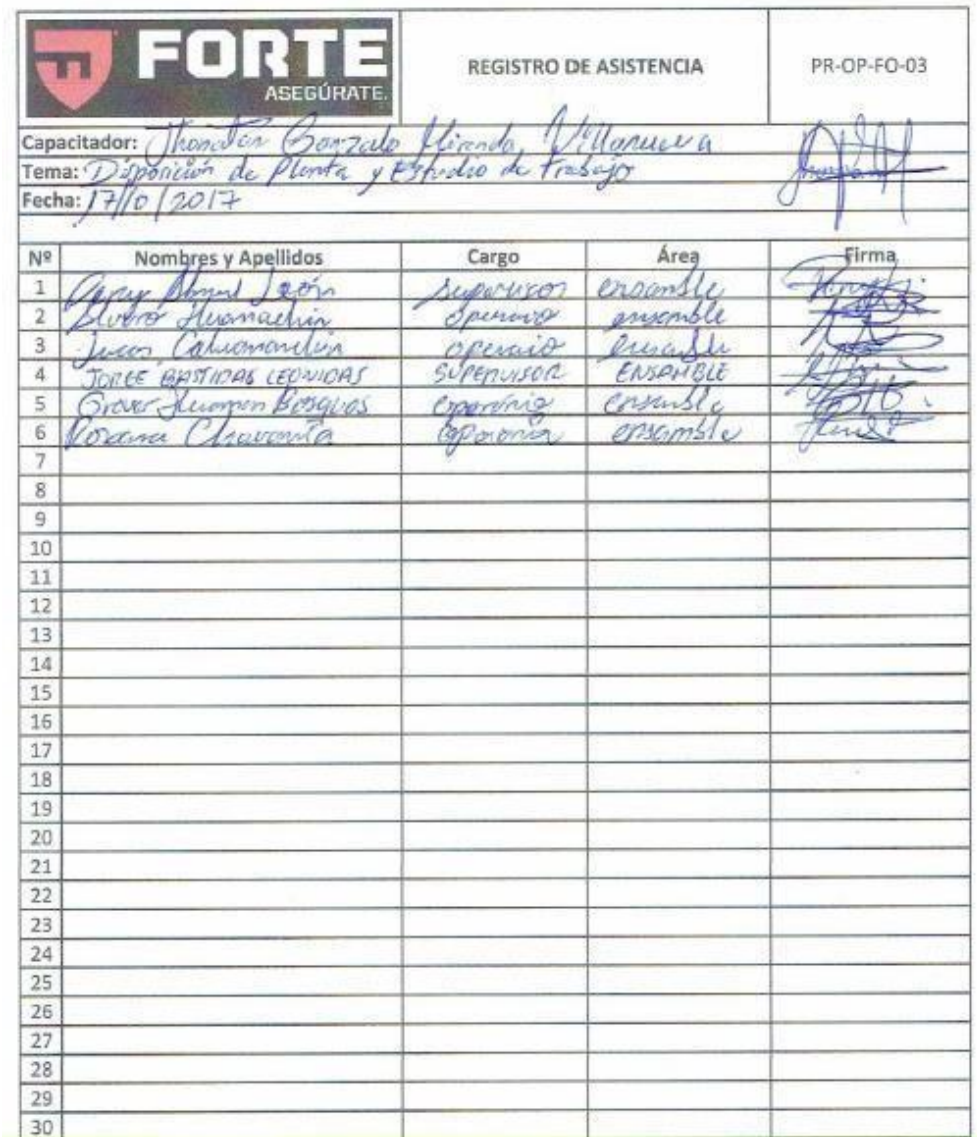 FORTE
ASEGÚRATE.
REGISTRO DE ASISTENCIA
PR-OP-FO-03
Capacitador: Jhonatan Gonzalo Miranda Villanueva
Tema: Disposición de Planta y Estudio de Trabajo
Fecha: 17/10/2017
Nº Nombres y Apellidos Cargo Área Firma
1 León supervisor ensamble
2 Alvaro Huamachin operario ensamble
3 operario ensamble
4 JORGE BASTIDAS LEONIDAS SUPERVISOR ENSAMBLE
5 Grover Huaman Bosques operario ensamble
6 Roxana operaria ensamble
7
8
9
10
11
12
13
14
15
16
17
18
19
20
21
22
23
24
25
26
27
28
29
30